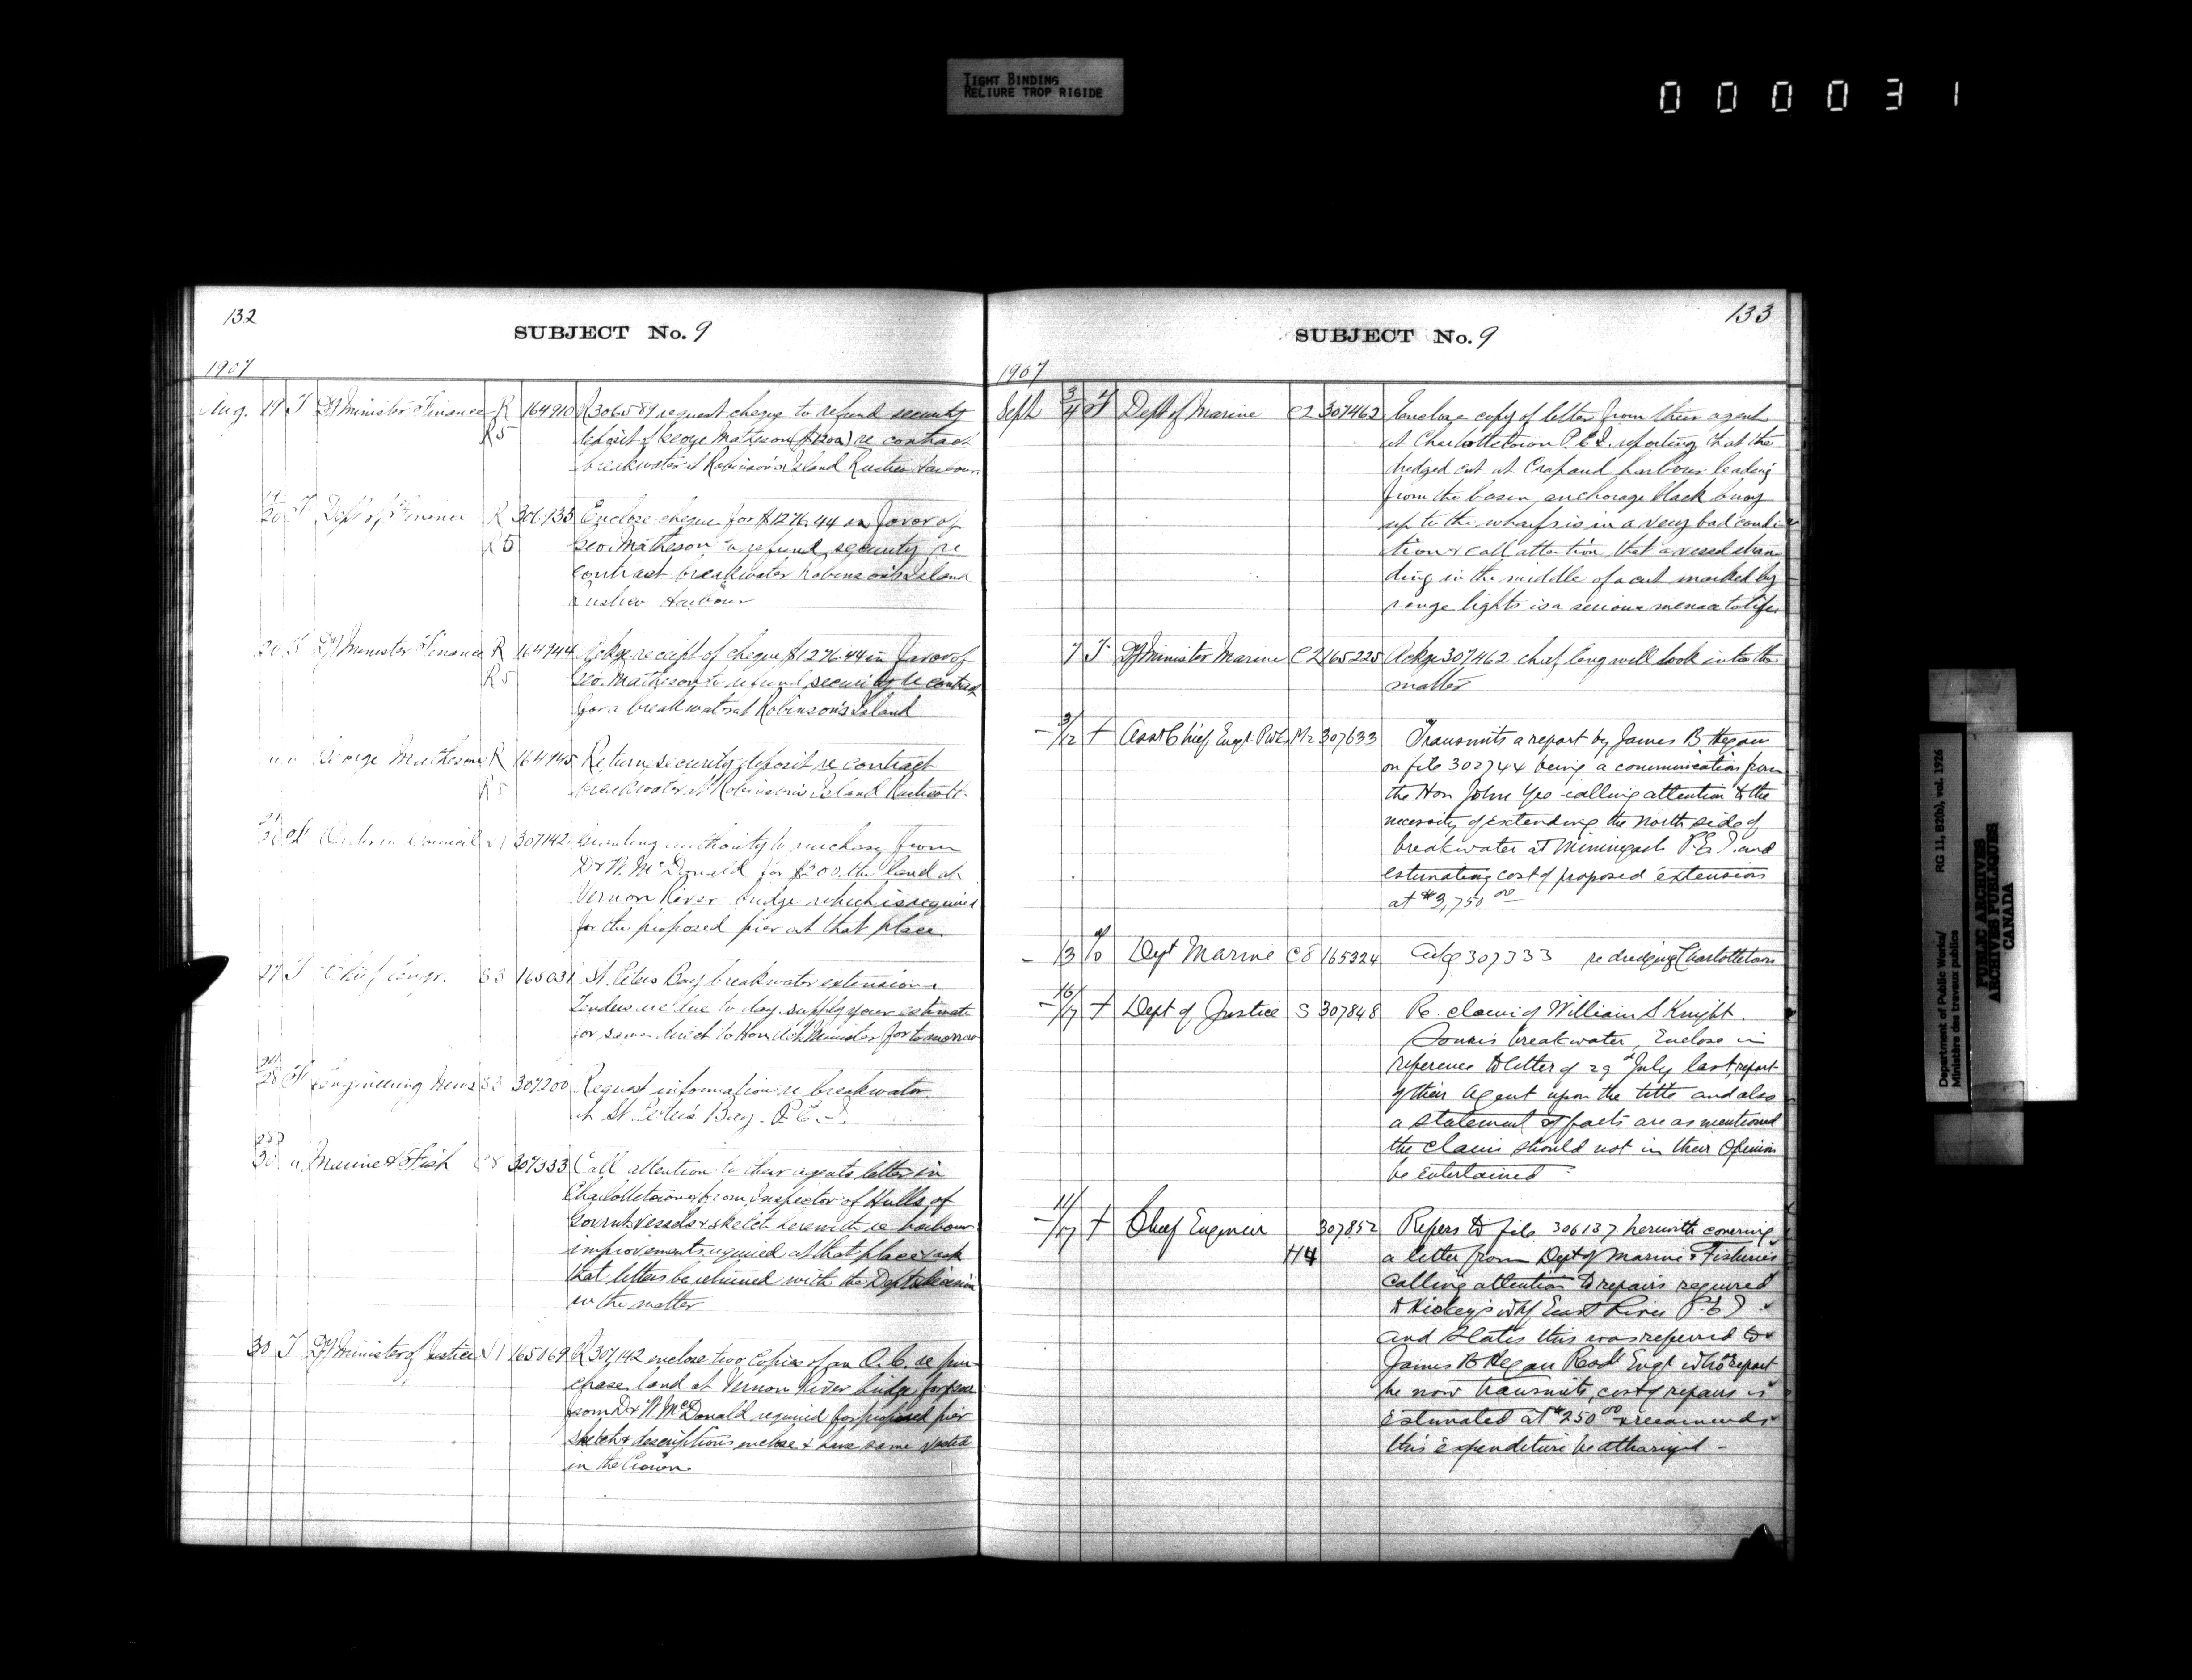 TIGHT BINDING
RELIURE TROP RIGIDE
0 0 0 0 3 1
132
SUBJECT No. 9
1907
Aug. 19 T Dy Minister Finance R 164910 R 306581 request cheque to refund security
R5 deposit of George Matheson ($1200) re contract
breakwater at Robinson's Island Rustico Harbour
20 T Dept of Finance R 306735 Enclose cheque for $1276.44 in favor of
R5 Geo. Matheson to refund security re
contract breakwater Robinson's Island
Rustico Harbour
20 T Dy Minister Finance R 164944 Ackge receipt of cheque $1276.44 in favor of
R5 Geo. Matheson to refund security re contract
for a breakwater at Robinson's Island
" " George Matheson R 164945 Return security deposit re contract
R5 breakwater at Robinson's Island Rustico H.
Order in Council V1 307142 Granting authority to purchase from
Dr W. McDonald for $200. the land at
Vernon River bridge which is required
for the proposed pier at that place
27 T Chief Engr. S3 165031 St. Peters Bay breakwater extension
Tenders are due to day supply your estimate
for same direct to Hon Actg Minister for tomorrow
28 Engineering News S3 307200 Request information re breakwater
at St. Peter's Bay. P.E.I.
30 " Marine & Fish C8 307333 Call attention to their agents letter in
Charlottetown & from Inspector of Hulls of
Govrnt vessels & sketch herewith re harbour
improvements required at that place & ask
that letters be returned with the Depts decision
in the matter
30 T Dy Minister of Justice V1 165069 R 307,142 enclose two copies of an O.C. re pur
chase land at Vernon River bridge
from Dr W McDonald required for proposed pier
sketch & descriptions enclose & have same vested
in the Crown
133
SUBJECT No. 9
1907
Sept 3/4 Dept of Marine C2 307462 Enclose copy of letter from their agent
at Charlottetown P.E.I. reporting that the
dredged cut at Crapaud harbour leading
from the basin anchorage black buoy
up to the wharf is in a very bad condi-
tion & call attention that a vessel stran
ding in the middle of a cut marked by
range lights is a serious menace to life
7 T Dy Minister Marine C2 165225 Ackge 307462 chief Eng will look into the
matter
9/12 Asst Chief Engr. P.W.D. M2 307633 Transmits a report by James B Hegan
on file 302744 being a communication from
the Hon John Yeo calling attention to the
necessity of extending the north side of
breakwater at Miminigash P.E.I. and
estimating cost of proposed extension
at $3,750.00
13 Dept Marine C8 165324 Ackg 307333 re dredging Charlottetown
16/17 Dept of Justice S 307848 Re. claim of William S Knight.
Souris breakwater, Enclose in
reference to letter of 29th July last, report
of their Agent upon the title and also
a statement if facts are as mentioned
the claim should not in their Opinion
be entertained
11/17 Chief Engineer 307852 Refers to file 306137 herewith covering
H4 a letter from Dept of Marine & Fisheries
calling attention to repairs required
to Hickey's whf East River P.E.I
and states this was referred to
James B Hegan Resdt Engr whose report
he now transmits, cost of repairs is
estimated at $250.00 & recommends
this expenditure be authorized -
Department of Public Works/
Ministère des travaux publics
RG 11, B2(b), vol. 1926
PUBLIC ARCHIVES
ARCHIVES PUBLIQUES
CANADA